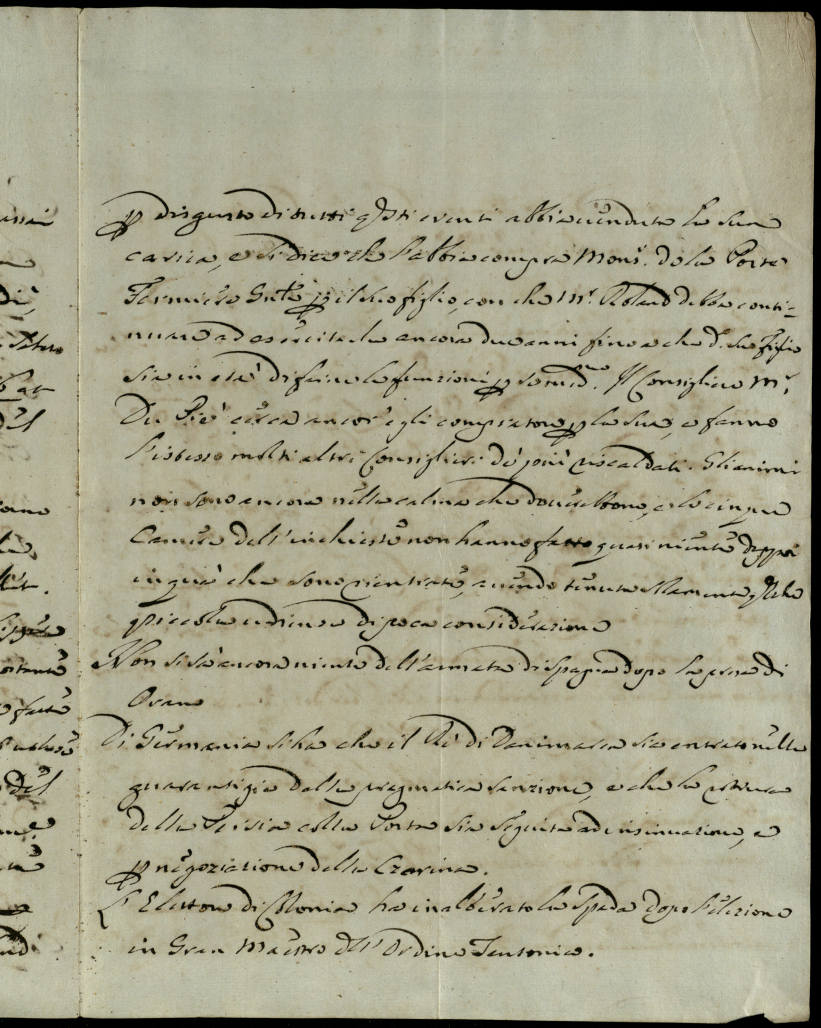 assai
di,
del
ꝑ disgusto di tutti qsti eventi abbia venduta la sua
carica, e si dice che l'abbia compra Mons.r de la Porte
Fermiere Gnle ꝑ il suo figlio, con che Mr. Roland debba conti=
nuare ad esercitarla ancora due anni fino a che d.o suo figlio
sia in età di farne le funzioni ꝑ se med.mo. Il Consigliere Mr.
Du Piè cerca ancor' egli compratore ꝑ la sua, e fanno
l'istesso molti altri Consiglieri de' più riscaldati. Gli animi
non sono ancora nella calma che dovrebbono, e le cinque
Camere dell'inchieste non hanno fatto quasi niente doppoi
in quà che sono rientrate, avendo tenuta solamente qlche
piccola udienza di poca considerazione
Non si sà ancora niente dell'armata di Spagna dopo la presa di
Orano
Di Germania si ha che il Rè di Danimarca sia entrato nella
guarantigia della pragmatica sanzione, e che la rottura
della Persia colla Porta sia seguita ad insinuazione, e
ꝑ negoziazione della Czarina.
L'Elettore di Colonia ha inalberato la Spada dopo l'elezione
in Gran Maestro dell'Ordine Teutonico.